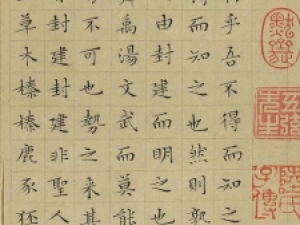 乎吾不得
得而知之也然則孰
由封建而明之也
禹湯文武而莫能
不可也勢之來其
封建封建非聖人
草木榛榛鹿豕狉
陸氏子傳